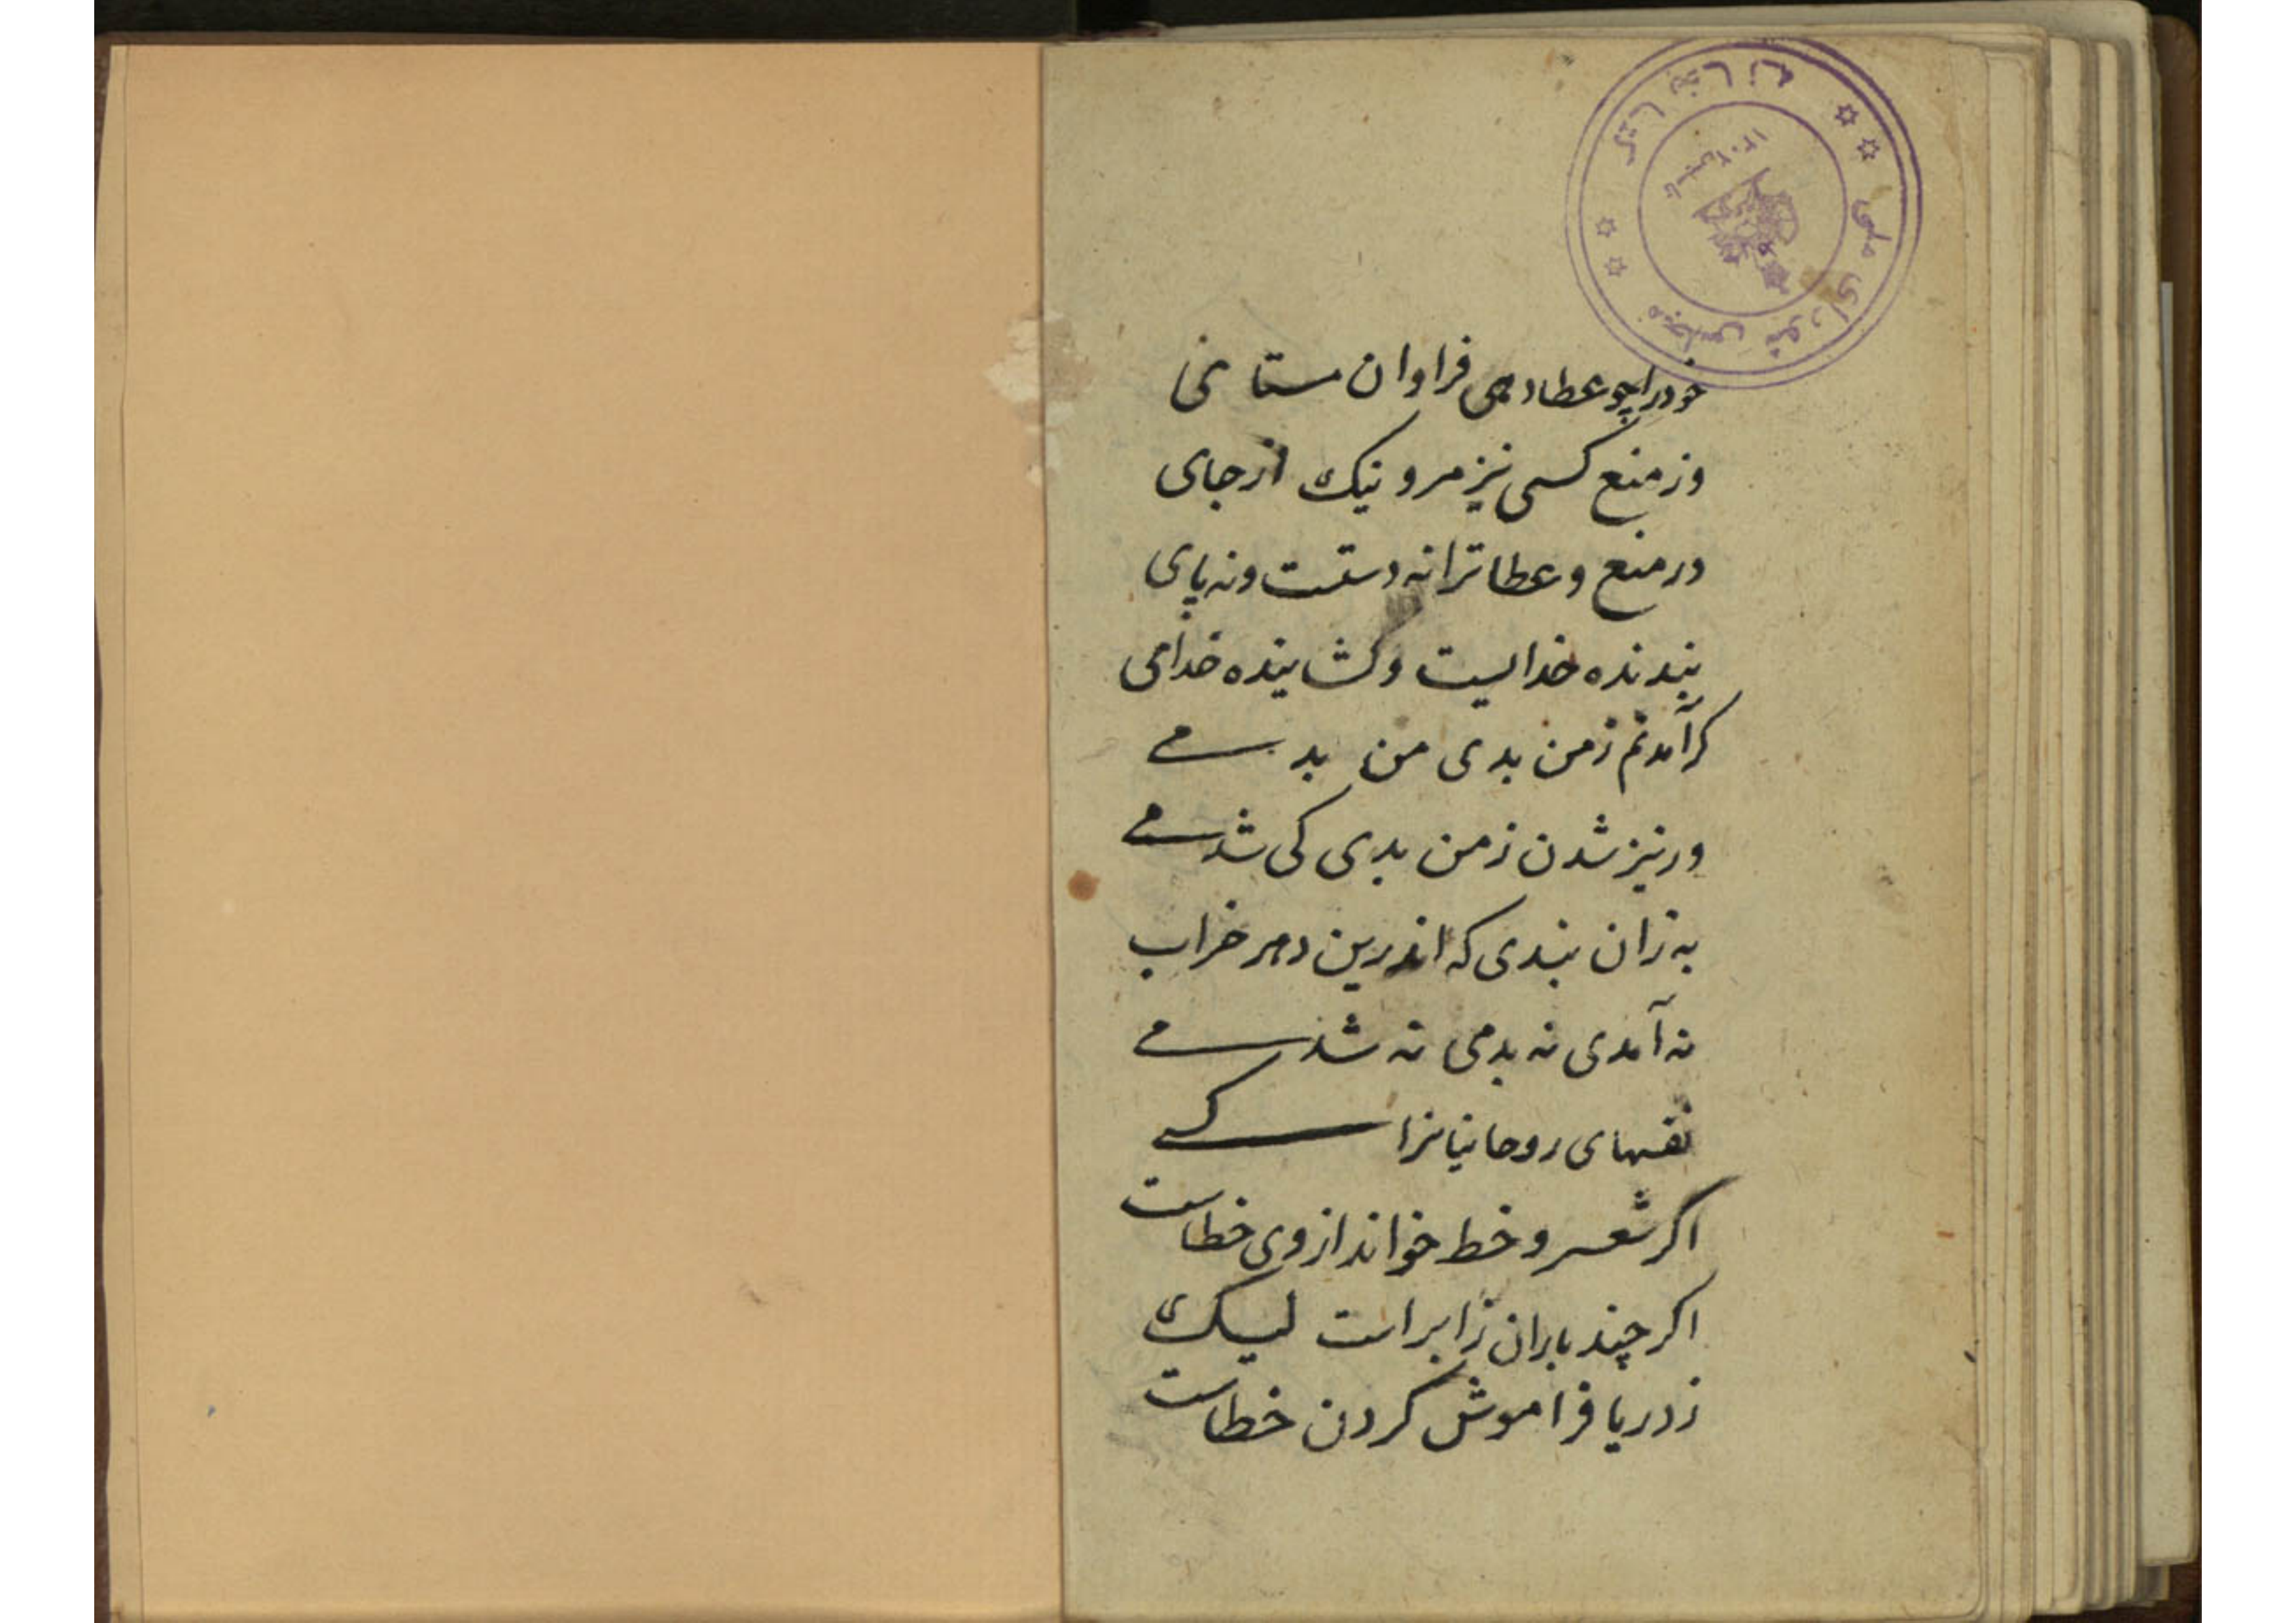 کتابخانه
مجلس شورای ملی
تأسیس ۱۳۰۲
خود را چو عطا دهی فراوان مستای
وز منع کسی نیز مرو نیک از جای
در منع و عطا ترا نه دستست و نه پای
بندنده خدایست و گشاینده خدای
کر آمدنم ز من بدی من بدمی
ور نیز شدن ز من بدی کی شدمی
به زان بندی که اندرین دهر خراب
نه آمدی نه بدمی نه شدمی
نفسهای روحانیانرا کسی
اکر شعر و خط خواند از وی خطاست
اکر چند باران ز ابر است لیک
ز دریا فراموش کردن خطاست